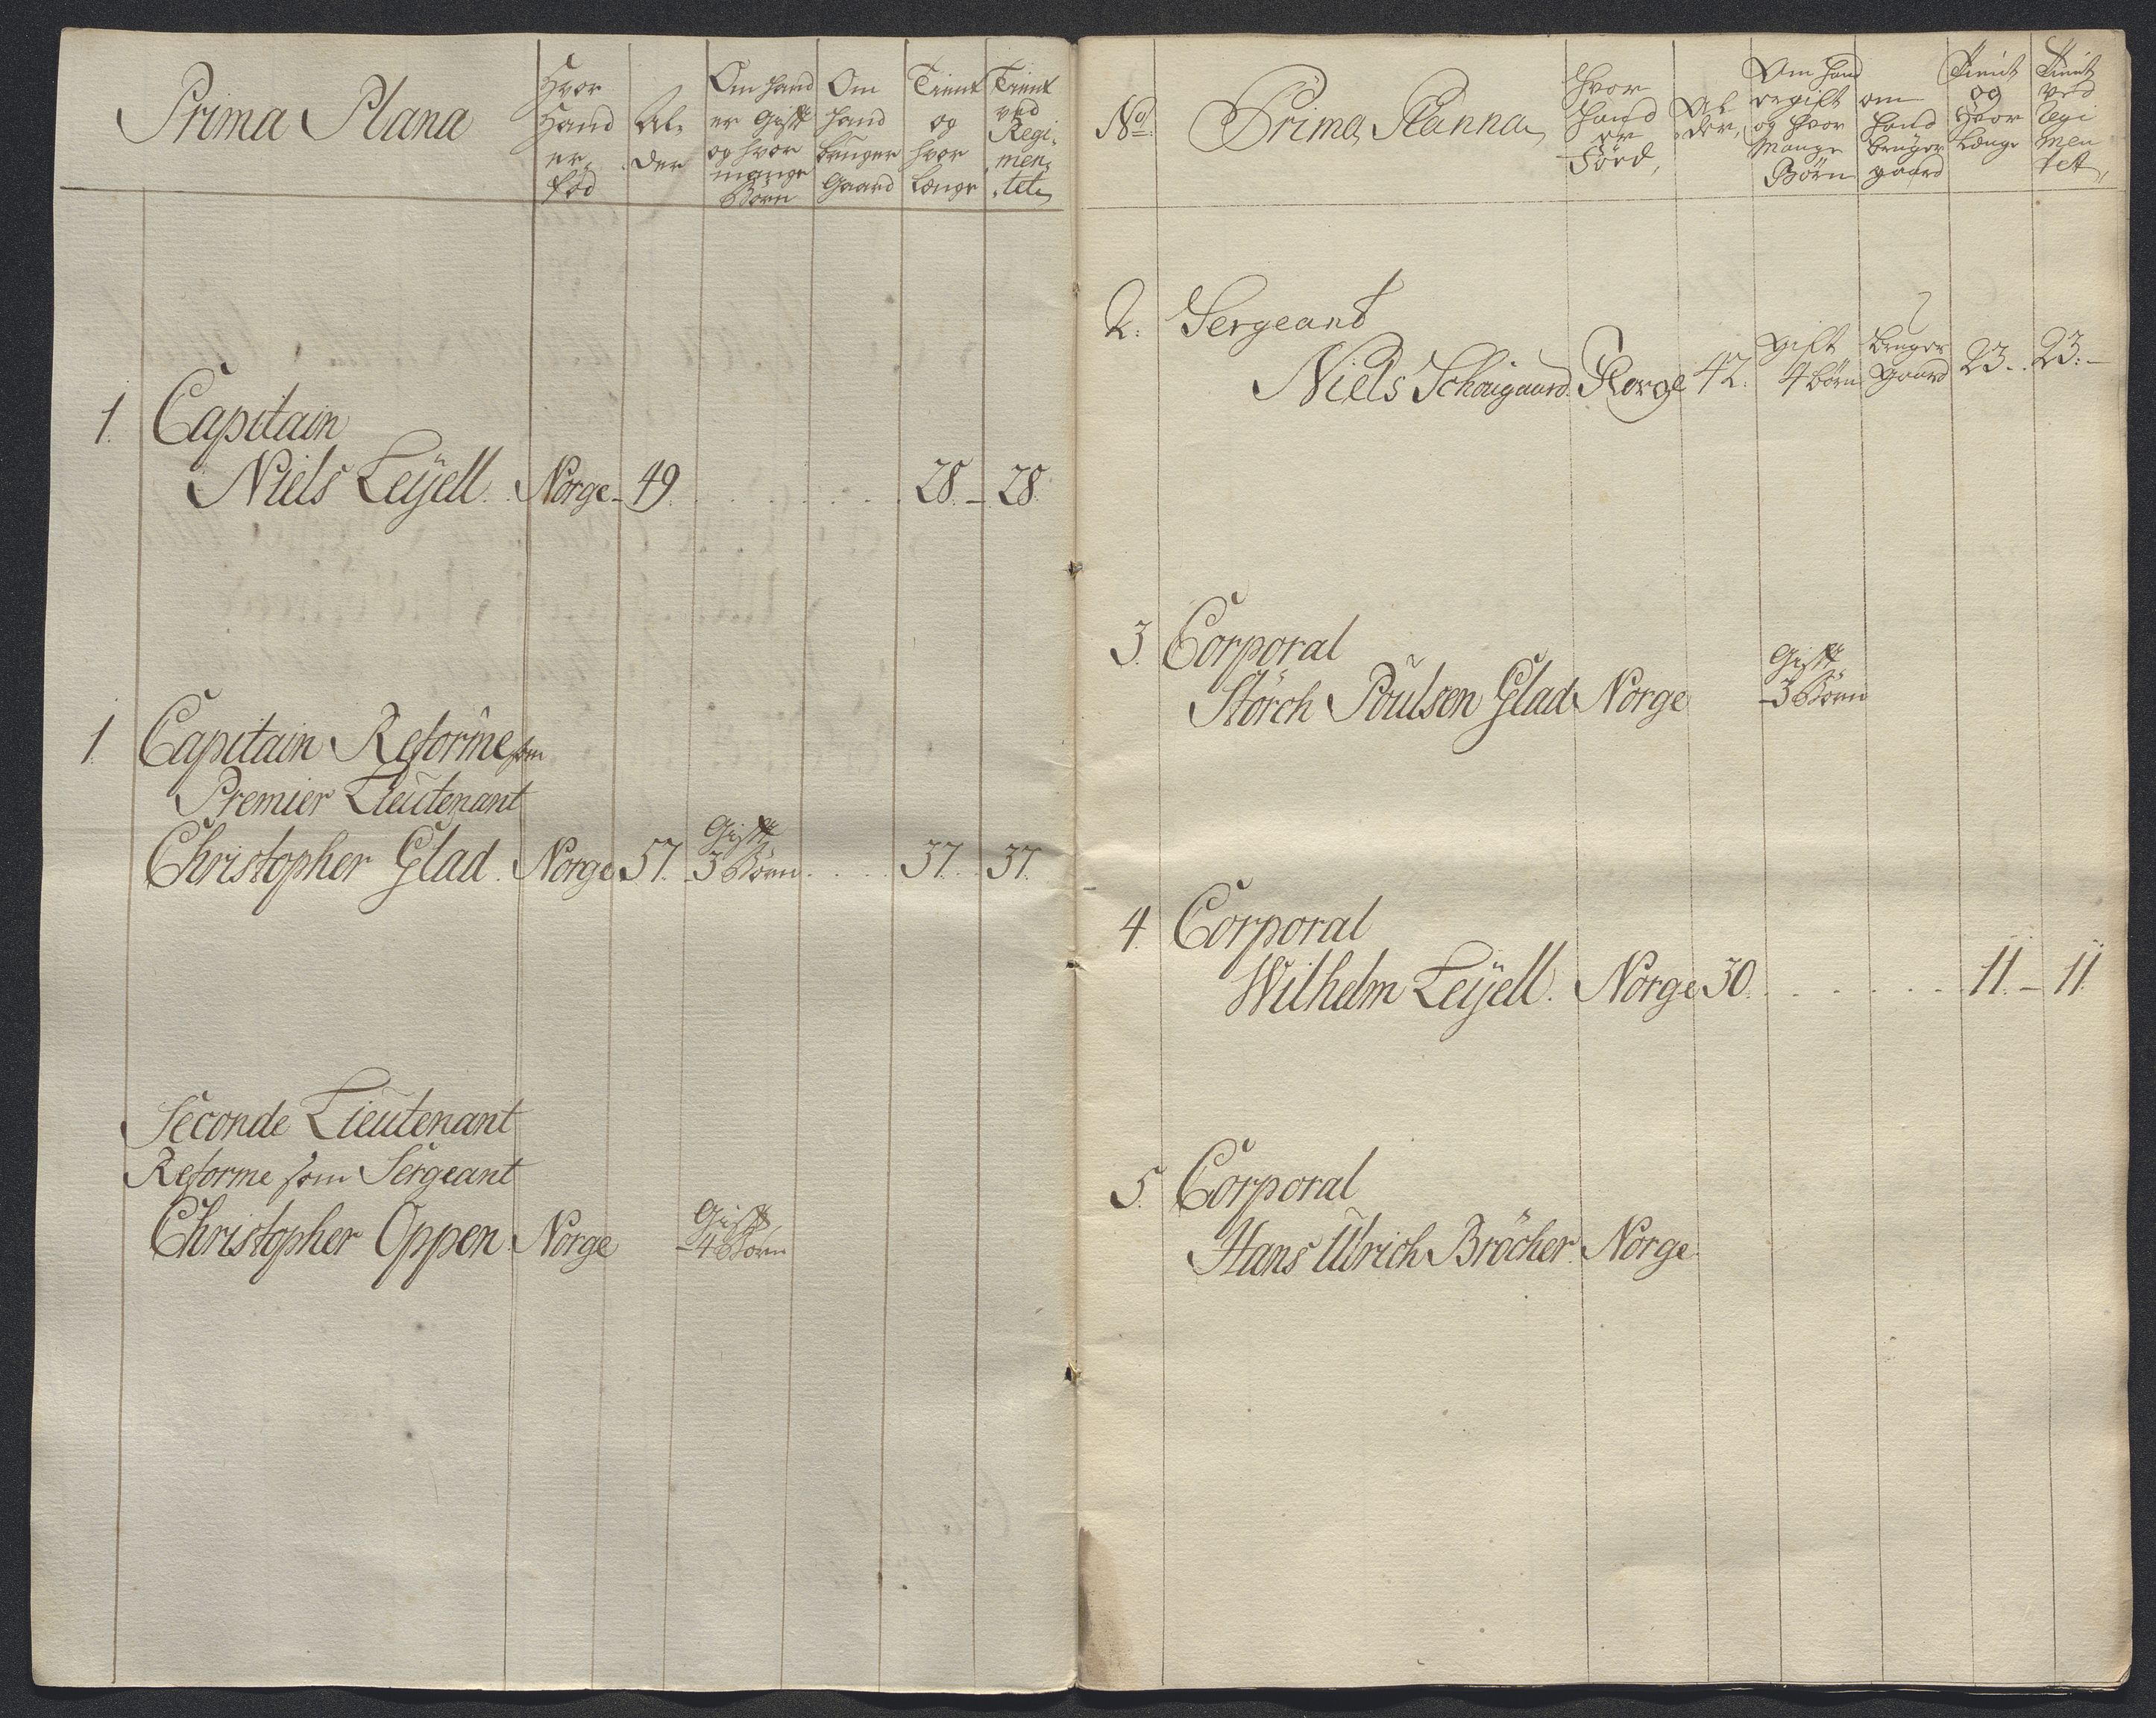 Prima Plana
Hvor Hand er fød
Al, der
Om hand er Gift og hvor mange Børn
Om hand bruger Gaard
Tient og hvor længe
Tient ved Regi, men, tet,
1. Capitain
Niels Leÿell. Norge 49. 28. 28.
1. Capitain Reforme som
Premier Lieutenant
Christopher Glad. Norge 57. Gift 3 Børn 37. 37.
Seconde Lieutenant
Reforme som Sergeant
Christopher Oppen. Norge Gift 4 Børn
No. Prima Planna
hvor hand er Förd,
Al der,
Om hand er gift og hvor Mange Börn
om hand bruger gaard
tient og hvor længe
tient ved Regi men tet,
2. Sergeant
Niels Schougaard. Norge 42. gift 4 börn bruger gaard 23. 23.
3. Corporal
Störch Poulsen Glad Norge Gift 3 Børn
4. Corporal
Wilhelm Leÿell. Norge 30. 11. 11.
5. Corporal
Hans Ulrich Bröcher. Norge.